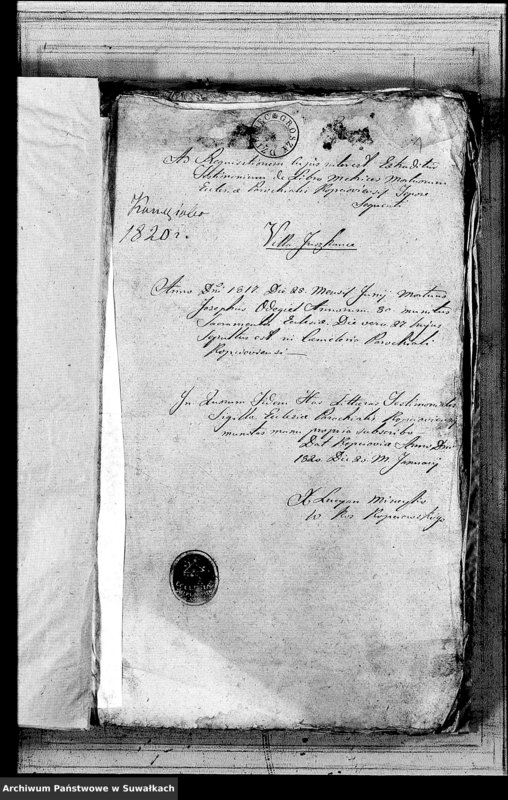 GROSZ
Ad Requisitionem cujus interest Extraditur
Testimonium de Libro Metrices Mortuorum
Ecclesiae Parochialis Kopciovien Tenore
Sequenti
1820 r.
Villa Juszkance
Anno Dni 1817. Die 25. Mensis Junij Mortuus
Josephus Annorum 80 munitus
Sacramentis Ecclesiae. Die vero 27 hujus
Sepultus est in Cmeterio Parochiali
Kopcioviensi
In Quorum Fidem Has Litteras Testimoniales
Sigillo Ecclesiae Parochialis Kopcioviensis
munitas manu propria subscribo
Dat Kopciovia Anno Dni
1820. Die 25 M. January
X. Lucyan
Archiwum Państwowe w Suwałkach